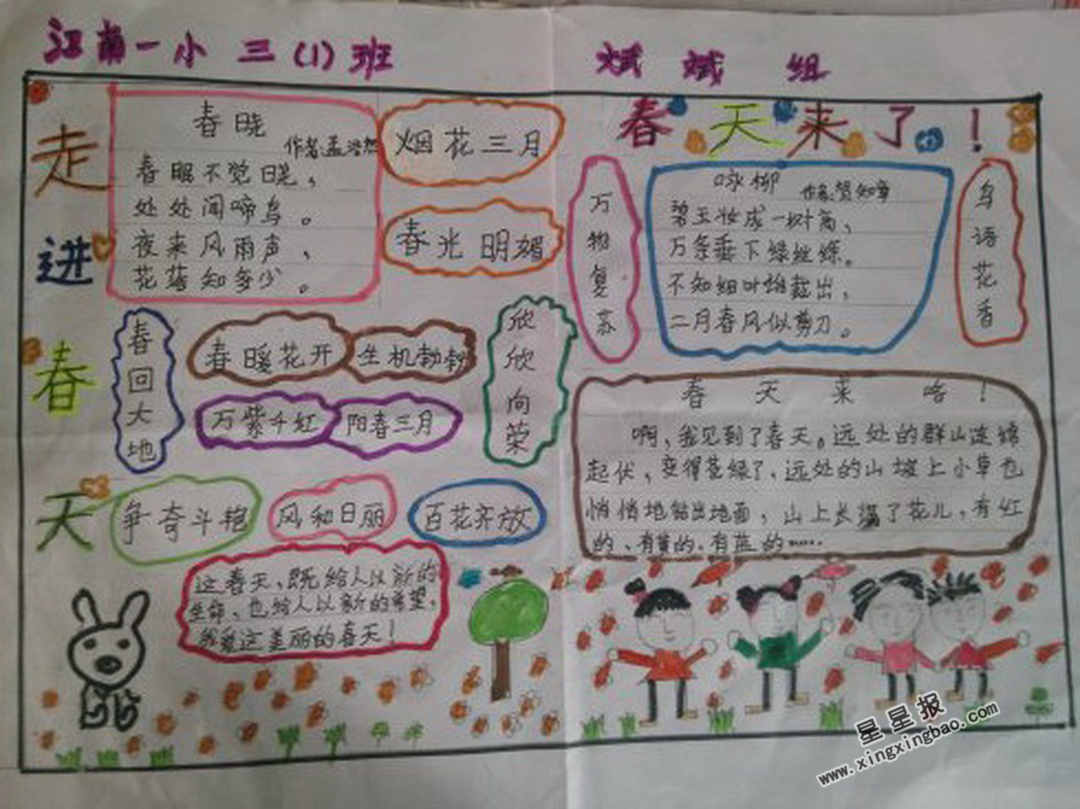 江南一小 三(1)班
斌斌组
走进春天
春晓
作者:孟浩然
春眠不觉晓，
处处闻啼鸟。
夜来风雨声，
花落知多少。
烟花三月
春光明媚
春回大地
春暖花开
生机勃勃
万紫千红
阳春三月
欣欣向荣
争奇斗艳
风和日丽
百花齐放
这春天、既给人以新的
生命、也给人以新的希望，
我爱这美丽的春天！
春天来了！
万物复苏
咏柳
作者:贺知章
碧玉妆成一树高，
万条垂下绿丝绦。
不知细叶谁裁出，
二月春风似剪刀。
鸟语花香
春天来咯！
啊，我见到了春天。远处的群山连绵
起伏，变得苍绿了，远处的山坡上小草也
悄悄地钻出地面，山上长满了花儿，有红
的、有黄的、有蓝的……
星星报
www.xingxingbao.com